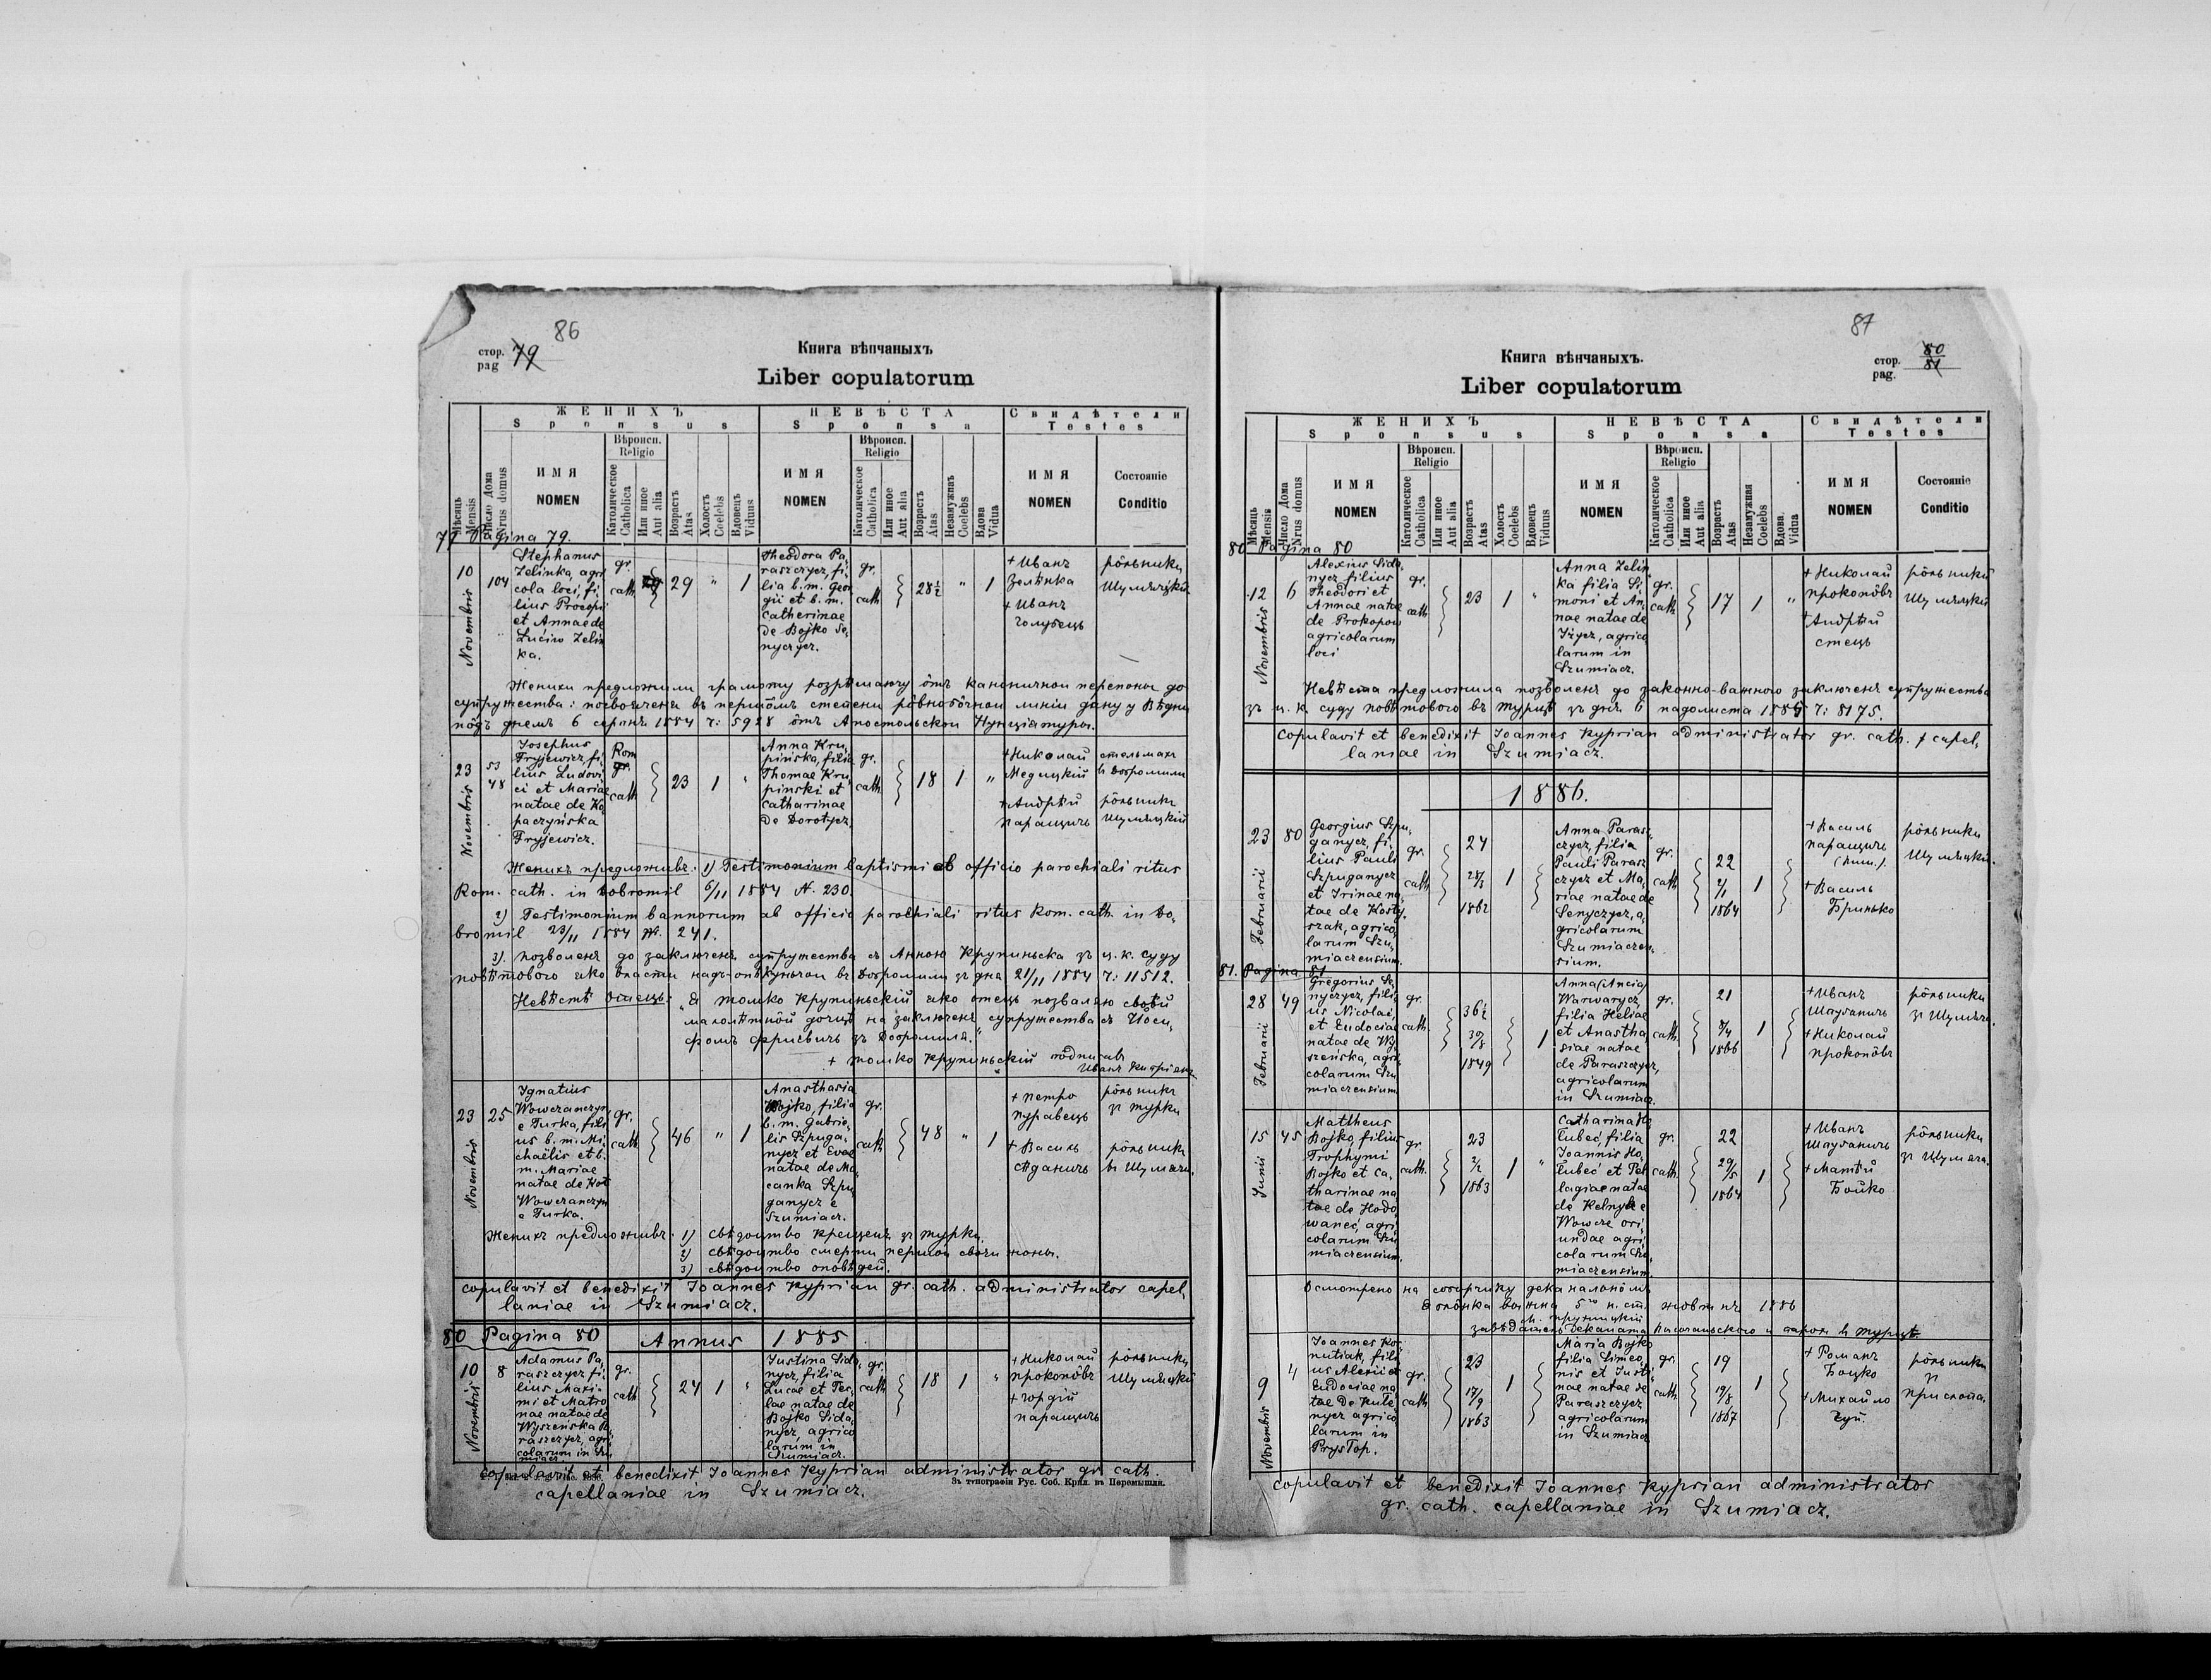 86
стор. 79
pag
Книга вѣнчаныхъ
Liber copulatorum
ЖЕНИХЪ
Sponsus
НЕВѢСТА
Sponsa
Свидѣтели
Testes
Мѣсяць
Mensis
Число Дома
Nrus domus
ИМЯ
NOMEN
Вѣроисп.
Religio
Католическое
Catholica
Или иное
Aut alia
Возрастъ
Atas
Холостъ
Coelebs
Вдовецъ
Viduus
ИМЯ
NOMEN
Вѣроисп.
Religio
Католическое
Catholica
Или иное
Aut alia
Возрастъ
Atas
Незамужнаѣ
Coelebs
Вдова
Vidua
ИМЯ
NOMEN
Состояніе
Conditio
Pagina 79.
10
Novembris
104
Stephanus
Zelinka, agri
cola loci, fi,
lius Procopii
et Annae de
Luciw Zelin
ka.
gr.
cath
29
"
1
Theodora Pa,
raszczycz, fi,
lia b.m. Geor
gii et b. m.
Catherinae
de Bojko Se,
nyczycz.
gr.
cath
28½
"
1
+ Иванъ
Зелѣнка
+ Иванъ
Голубець
рôльники
Шумяцкіи
Женихи предложили грамоту розрѣшаючу ôтъ каноничнои перепоны до
супружества: посвояченя въ першôмъ степени рôвнобôчнои линіи дану у Вѣдни
пôдъ днемъ 6 серпнъ 1884 ч: 5928 ôтъ Апостольскои Нунціятуры.
23
Novembris
53
48
Josephus
Fryjewicz, fi,
lius Ludovi
ci et Mariae
natae de Ko
paczyńska
Fryjewicz.
Rom
gr.
cath
23
1
"
Anna Kru,
pińska, filia
Thomae Kru
pinski et
Catharinae
de Dorotycz
gr.
cath
18
1
"
+ Николай
Медицкій
+ Андрѣй
Паращичъ
стельмах
в Добромили
рôльникъ
Шумяцкій
Женихъ предложивъ: 1) Testimonium baptismi ab officio parochiali ritus
Rom. cath. in Dobromil 6/11 1884 N. 230
2) Testimonium bannorum ab officio parochiali ritus Rom. cath. in Do,
bromil 23/11 1884 N. 241.
3). позволенѣ до заключенѣ супружества съ Анною Крупиньска зъ ц. к. суду
повѣтового яко власти надъ-опѣкуньчои въ Добромили зъ дня 21/11 1884 ч: 11512.
Невѣстѣ Отець: "Я Томко Крупиньскій яко отець позваляю своѣй
малолѣтнôй дочцѣ на заключенѣ супружества съ Йôси,
фомъ Фриєвичъ зъ Добромиля."
+ Томко Крупиньскій пôдписавъ
Иванъ Кипріянъ
23
Novembris
25
Ignatius
Wowczanczyn
e Turka, fili
us b. m. Mi
chaëlis et b.
m. Mariae
natae de Kot
Wowczanczyn
e Turka.
gr.
cath
46
"
1
Anasthasia
Bojko, filia
b. m. Gabrie,
lis Szpuga,
nycz et Evae
natae de Ma,
canka Szpu
ganycz e
Szumiacz.
gr.
cath
48
"
1
+ Петро
Пуравець
+ Василь
Сѣданичъ
рôльникъ
зъ Турки
рôльникъ
въ Шумячи.
Женихъ предложивъ: 1) свѣдоцтво крещенѣ зъ Турки.
2) свѣдоцтво смерти першои своєи жоны.
3) свѣдоцтво оповѣдей.
copulavit et benedixit Joannes Kyprian gr. cath. administrator capel,
laniae in Szumiacz.
80 Pagina 80
Annus 1885
10
Novembris
8
Adamus Pa,
raszczycz fi,
lius Maxi,
mi et Matro
nae natae de
Wyszeńska Pa
raszczycz, agri
colarum in Szu
miacz.
gr.
cath
24
1
"
Justina Sida
nycz, filia
Lucae et Tec,
lae natae de
Bojko Sida,
nycz, agrico
larum in
Szumiacz.
gr.
cath
18
1
"
+ Николай
Прокопôвъ
+ Гордій
Паращичъ
рôльники
Шумяцкіи
copulavit et benedixit Joannes Kyprian administrator gr. cath.
capellaniae in Szumiacz.
Зъ типографіи Рус. Соб. Крил. въ Перемышли.
87
стор. 80
pag. 81
Книга вѣнчаныхъ.
Liber copulatorum
ЖЕНИХЪ
Sponsus
НЕВѢСТА
Sponsa
Свидѣтели
Testes
Мѣсяць
Mensis
Число Дома
Nrus domus
ИМЯ
NOMEN
Вѣроисп.
Religio
Католическое
Catholica
Или иное
Aut alia
Возрастъ
Atas
Холостъ
Coelebs
Вдовецъ
Viduus
ИМЯ
NOMEN
Вѣроисп.
Religio
Католическое
Catholica
Или иное
Aut alia
Возрастъ
Atas
Незамужная
Coelebs
Вдова.
Vidua
ИМЯ
NOMEN
Состояніе
Conditio
80 Pagina 80
12
Novembris
6
Alexius Sida,
nycz, filius
Theodori et
Annae natae
de Prokopow
agricolarum
loci
gr.
cath
23
1
"
Anna Zelin
ka filia Si,
moni et An,
nae natae de
Iżycz, agrico
larum in
Szumiacz.
gr.
cath
17
1
"
+ Николай
Прокопôвъ
+ Андрѣй
Стець
рôльникы
Шумяцкіи
Невѣста предложила позволенѣ до законно-важного заключенѣ супружества
зъ ц. к. суду повѣтового въ Турцѣ зъ днѣ 6 падолиста 1885 ч: 8175.
Copulavit et benedixit Joannes Kyprian administrator gr. cath. capel,
laniae in Szumiacz.
1886.
23
Februarii
80
Georgius Szpu,
ganycz, fi,
lius Pauli
Szpuganycz
et Irinae na,
tae de Kosty,
szak, agrico,
larum Szu,
miaczensium.
gr.
cath
24
28/3
1862
1
Anna Parasz,
czycz, filia
Pauli Parasz
czycz et Ma,
riae natae de
Senyczycz, a,
gricolarum
Szumiaczen,
sium.
gr.
cath
22
2/1
1864
1
+ Василь
Паращичъ
+ Василь
Бринько
рôльники
Шумяцкіи.
81. Pagina 81
28
Februarii
49
Gregorius Se,
nyczycz, fili,
us Nicolai,
et Eudociae
natae de Wy
szeńska, agri
colarum Szu
miaczensium
gr.
cath.
36½
30/8
1849
1
Anna (Ancia)
Warwarycz,
filia Heliae
et Anastha
siae natae
de Paraszczycz,
agricolarum
in Szumiacz.
gr.
cath.
21
3/4
1866
1
+ Иванъ
Шпуганичъ
+ Николай
Прокопôвъ
рôльники
зъ Шумячи.
15
Junii
45
Mattheus
Bojko, filius
Trophymi
Bojko et Ca,
tharinae na
tae de Hodo
waneć, agri
colarum Szu
miaczensium.
gr.
cath.
23
2/2
1863
1
"
Catharina Ho
łubeć, filia
Joannis Ho,
łubeć et Pel
lagiae natae
de Kelnyk e
Wowcze ori,
undae agri
colarum Szu,
miaczensium.
gr.
cath.
22
29/5
1864
1
+ Иванъ
Шпуганичъ
+ Матѣй
Бойко
рôльники
зъ Шумячи.
Осмотрено на соборчику деканальнôмъ
1886
завѣдатель Деканата Высочаньского и парох въ Турцѣ
9
Novembris
4
Joannes Kor
nutiak, fili
us Alexii et
Eudociae na
tae de Kule
nycz agrico
larum in
Prysłop.
gr.
cath
23
17/9
1863
1
Maria Bojko
filia Simeo,
nis et Justi
nae natae de
Paraszczycz
agricolarum
in Szumiacz
gr.
cath.
19
19/8
1867
1
+ Романъ
Боцко
+ Михайло
Цуй.
рôльники
зъ
Прислопа.
Copulavit et benedixit Joannes Kyprian administrator
gr. cath. capellaniae in Szumiacz.